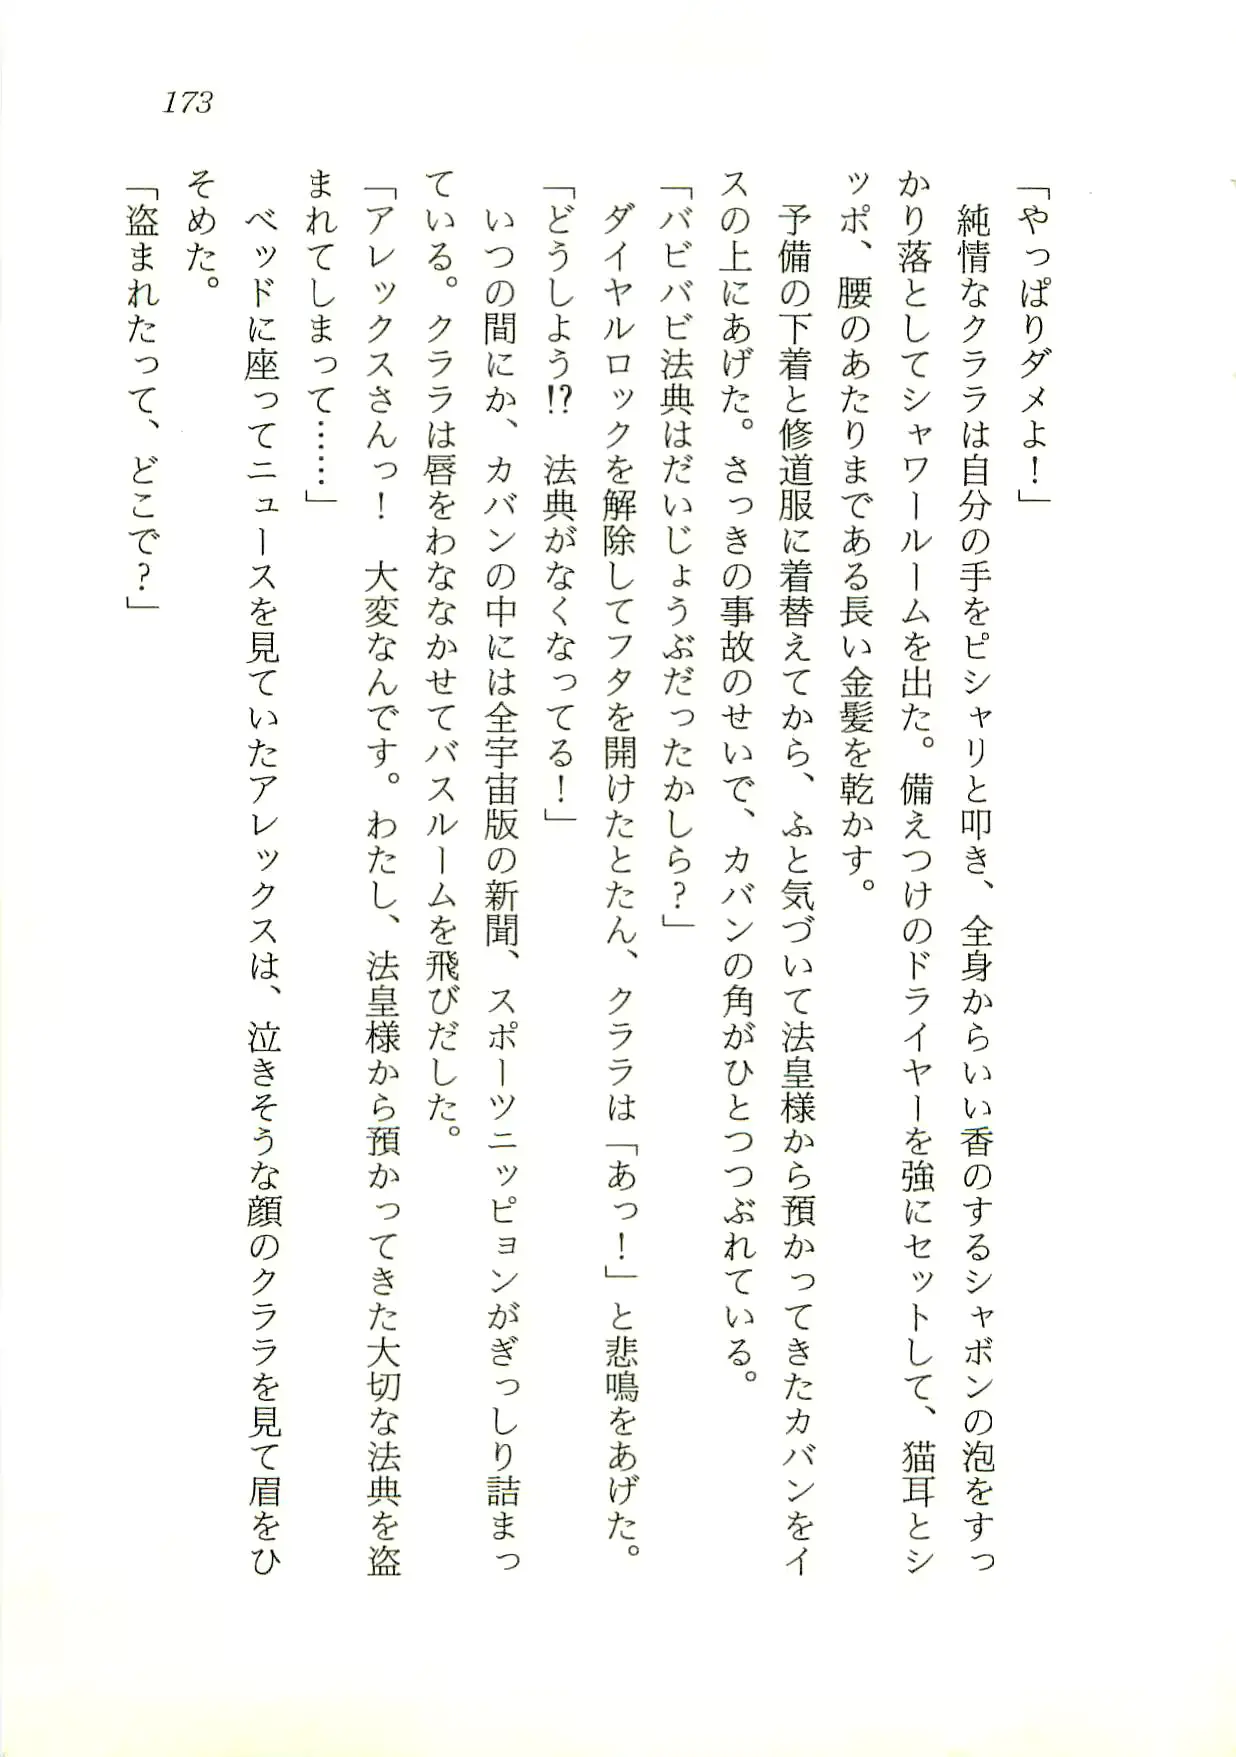 173
「やっぱりダメよ！」
純情なクララは自分の手をピシャリと叩き、全身からいい香のするシャボンの泡をすっ
かり落としてシャワールームを出た。備えつけのドライヤーを強にセットして、猫耳とシ
ッポ、腰のあたりまである長い金髪を乾かす。
予備の下着と修道服に着替えてから、ふと気づいて法皇様から預かってきたカバンをイ
スの上にあげた。さっきの事故のせいで、カバンの角がひとつつぶれている。
「バビバビ法典はだいじょうぶだったかしら？」
ダイヤルロックを解除してフタを開けたとたん、クララは「あっ！」と悲鳴をあげた。
「どうしよう!?　法典がなくなってる！」
いつの間にか、カバンの中には全宇宙版の新聞、スポーツニッピョンがぎっしり詰まっ
ている。クララは唇をわななかせてバスルームを飛びだした。
「アレックスさんっ！　大変なんです。わたし、法皇様から預かってきた大切な法典を盗
まれてしまって……」
ベッドに座ってニュースを見ていたアレックスは、泣きそうな顔のクララを見て眉をひ
そめた。
「盗まれたって、どこで？」